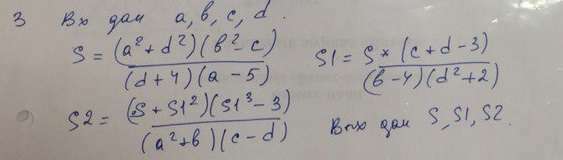 3 Вх дан a, b, c, d.
S = (a² + d²)(b² - c) / (d + 4)(a - 5) S1 = S * (c + d - 3) / (b - 4)(d² + 2)
S2 = (S + S1²)(S1³ - 3) / (a² + b)(c - d) Вых дан S, S1, S2.